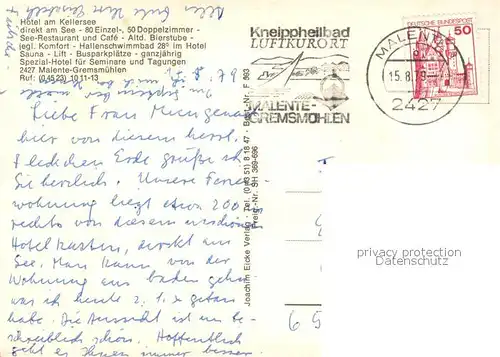 Hotel am Kellersee
direkt am See - 80 Einzel-, 50 Doppelzimmer -
See-Restaurant und Café - Altd. Bierstube -
jegl. Komfort - Hallenschwimmbad 28° im Hotel
Sauna - Lift - Busparkplätze - ganzjährig
Spezial-Hotel für Seminare und Tagungen
2427 Malente-Gremsmühlen
Ruf: (04523) 1011-13
Kneippheilbad
LUFTKURORT
MALENTE-
GREMSMÜHLEN
MALENTE
15.8.79
2427
DEUTSCHE BUNDESPOST
50
Joachim Eicke Verlag - Tel. (0 43 51) 8 18 47 - Best.-Nr. F 863
Preis-Nr. SH 369-696
Liebe Frau
hier von diesem herrl.
Fleckchen Erde grüße ich
Sie herzlich. Unsere Ferien-
wohnung liegt etwa 200 m
rechts von diesem
Hotelkasten, direkt am
See. Man kann von der
Wohnung aus baden gehen
was ich heute 2 x getan
habe. Die Aussicht ist un-
beschreiblich schön. Hoffentlich
geht es Ihnen immer besser
privacy protection
Datenschutz